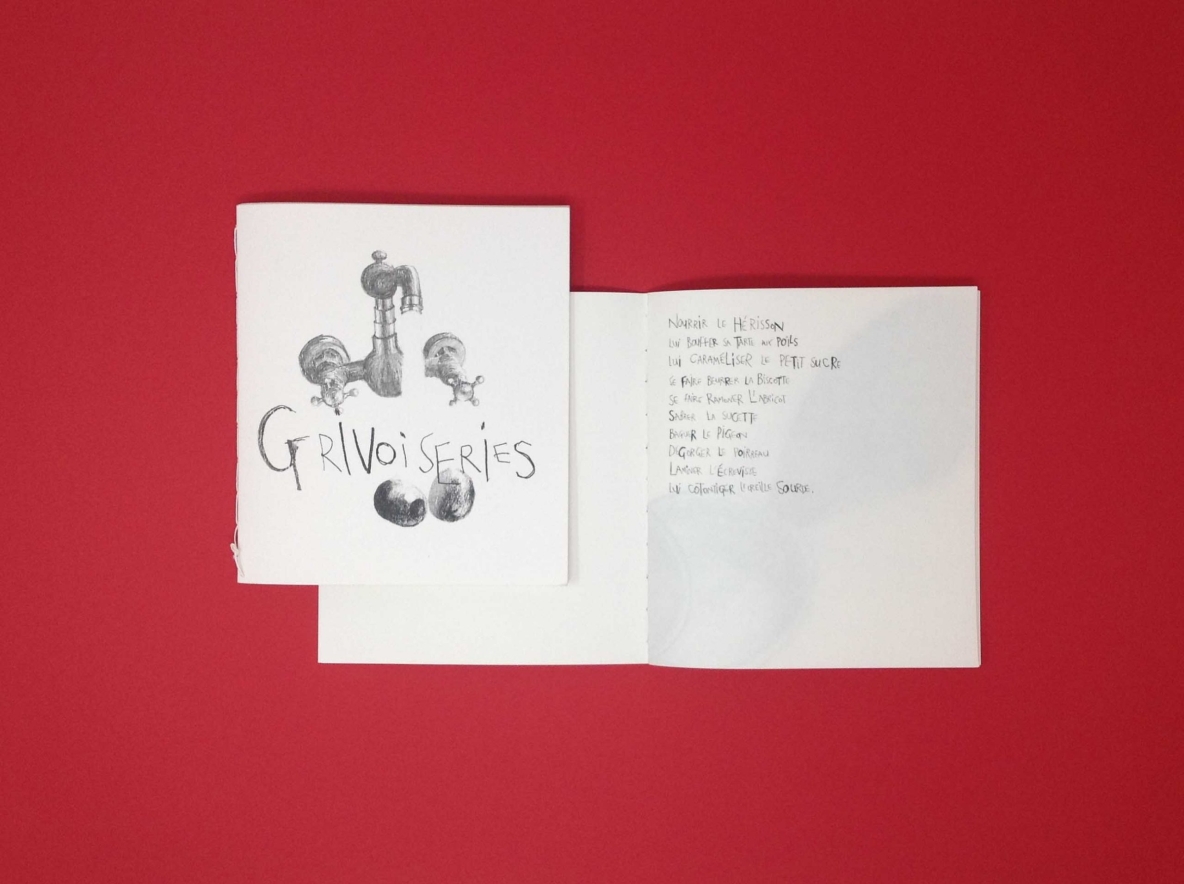 GRIVOISERIES
NOURRIR LE HÉRISSON
LUI BOUFFER SA TARTE AUX POILS
LUI CARAMÉLISER LE PETIT SUCRE
SE FAIRE BEURRER LA BISCOTTE
SE FAIRE RAMONER L'ABRICOT
SABRER LA SUCETTE
BAGUER LE PIGEON
DÉGORGER LE POIREAU
LAMINER L'ÉCREVISSE
LUI COTONTIGER L'OREILLE SOURDE.